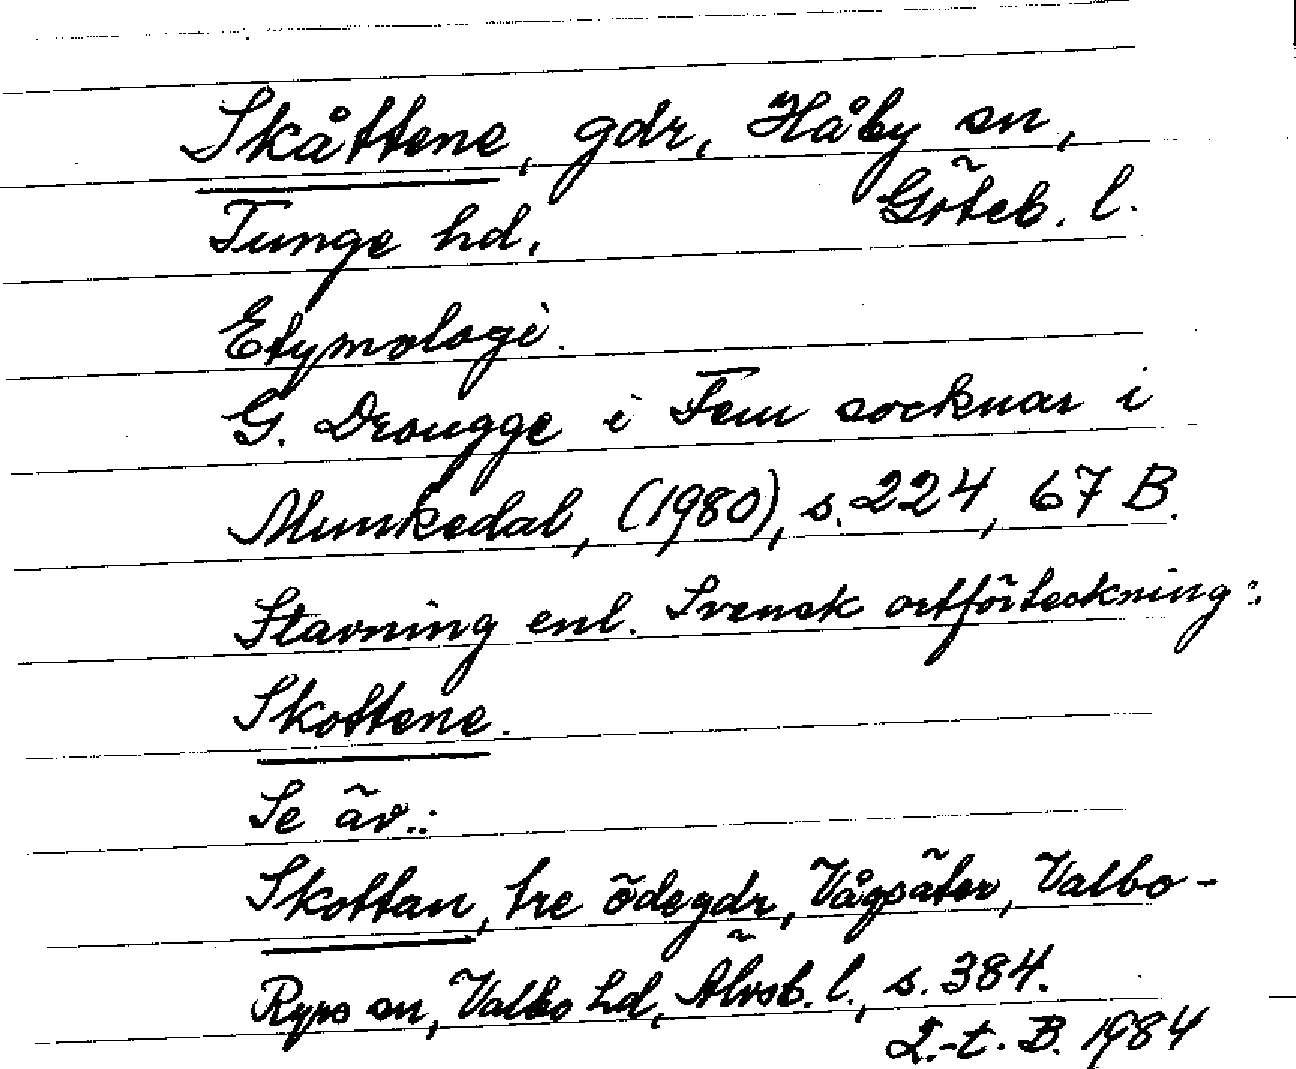 Skåttene, gdr, Håby sn,
Göteb. l.
Tunge hd.
Etymologi.
G. Drougge i Fem socknar i
Munkedal, (1980), s. 224, 67 B.
Stavning enl. Svensk ortförteckning:
Skottene.
Se äv.:
Skottan, tre ödegdr, Vågsäter, Valbo-
Ryrs sn, Valbo hd, Älvsb. l., s. 384.
L.-t. B. 1984